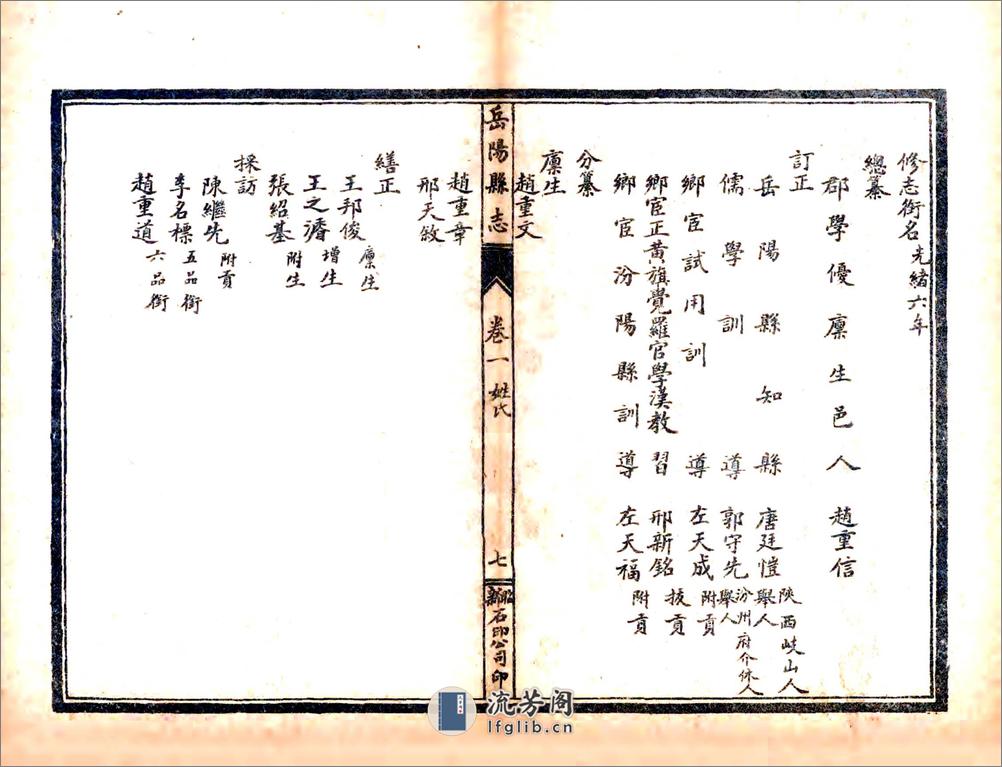 修志銜名光緒六年
總纂
郡學優廩生邑人 趙重信
訂正
岳陽縣知縣 唐廷愷 陝西岐山人 舉人
儒學訓導 郭守先 汾州府介休人 舉人
鄉宦試用訓導 左天成 附貢
鄉宦正黃旗覺羅官學漢教習 邢新銘 拔貢
鄉宦汾陽縣訓導 左天福 附貢
分纂
廩生
趙重文
岳陽縣志
卷一 姓氏
七
石印公司印
趙重章
邢天敘
繕正
王邦俊 廩生
王之濬 增生
張紹基 附生
採訪
陳繼先 附貢
李名標 五品銜
趙重道 六品銜
流芳阁
lfglib.cn